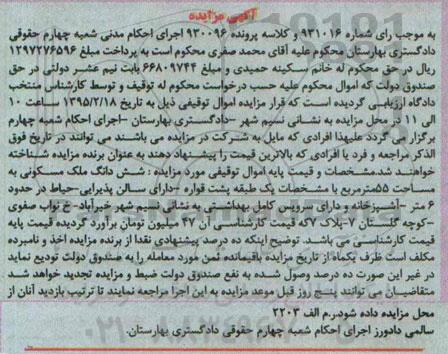 آگهی مزایده
به موجب رای شماره ۹۳۱۰۱۶ و کلاسه پرونده ۹۳۰۰۹۶ اجرای احکام مدنی شعبه چهارم حقوقی
دادگستری بهارستان محکوم علیه آقای محمد صفری محکوم است به پرداخت مبلغ ۱۲۹۷۲۷۶۵۹۶
ریال در حق محکوم له خانم سکینه حمیدی و مبلغ ۶۶۸۰۹۷۴۴ بابت نیم عشر دولتی در حق
صندوق دولت که اموال محکوم علیه حسب درخواست محکوم له توقیف و توسط کارشناس منتخب
دادگاه ارزیابی گردیده است که قرار مزایده اموال توقیفی ذیل به تاریخ ۱۳۹۵/۲/۱۸ ساعت ۱۰
الی ۱۱ در محل مزایده به نشانی نسیم شهر -دادگستری بهارستان -اجرای احکام شعبه چهارم
برگزار می گردد علیهذا افرادی که مایل به شرکت در مزایده می باشند می توانند در تاریخ فوق
الذکر مراجعه و فرد یا افرادی که بالاترین قیمت را پیشنهاد دهند به عنوان برنده مزایده شناخته
خواهند شد.مشخصات و قیمت پایه اموال توقیفی مورد مزایده : شش دانگ ملک مسکونی به
مساحت ۵۵مترمربع با مشخصات یک طبقه پشت قواره -دارای سالن پذیرایی-حیاط در حدود
۶ متر -آشپزخانه و دارای سرویس کامل بهداشتی به نشانی نسیم شهر خیرآباد- خ نواب صفوی
-کوچه گلستان ۷-پلاک ۷که قیمت کارشناسی آن ۴۷ میلیون تومان برآورد گردیده قیمت پایه
قیمت کارشناسی می باشد. توضیح اینکه ده درصد پیشنهادی نقدا از برنده مزایده اخذ و نامبرده
مکلف است ظرف یکماه از تاریخ مزایده باقیمانده ثمن مورد معامله را به صندوق دولت تودیع نماید
در غیر این صورت ده درصد وصول شده به نفع صندوق دولت ضبط و مزایده تجدید خواهد شد
متقاضیان می توانند پنج روز قبل موعد مزایده به این اجرا مراجعه نمایند تا ترتیب بازدید آنان از
محل مزایده داده شود.ر.م الف ۲۲۰۳
سالمی دادورز اجرای احکام شعبه چهارم حقوقی دادگستری بهارستان.